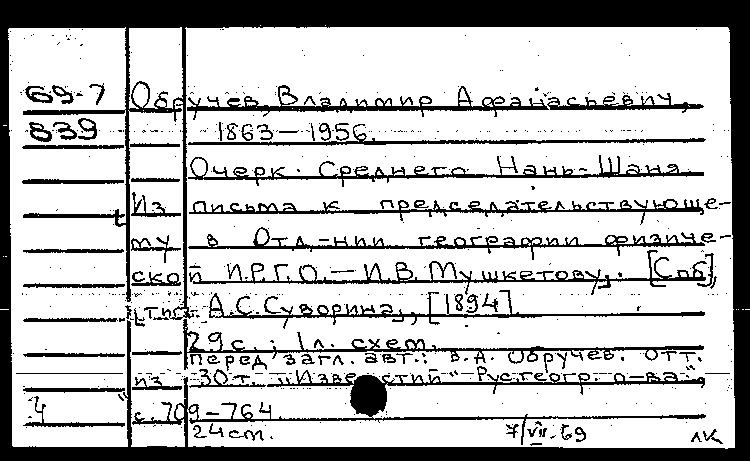 69-7 Обручев, Владимир Афанасьевич,
839 1863-1956.
Очерк Среднего Нань-Шаня.
Из письма к председательствующе-
му в Отд-нии географии физиче-
ской И.Р.Г.О. — И.В. Мушкетову. [Спб],
тип. А.С. Суворина, [1894]
29 с.; 1 л. схем.
Перед загл. авт.: В.А. Обручев. Отт.
из 30 т. „Известий“ Рус. геогр. о-ва,
с. 709-764.
24 cm. 7/VII-69 ЛК